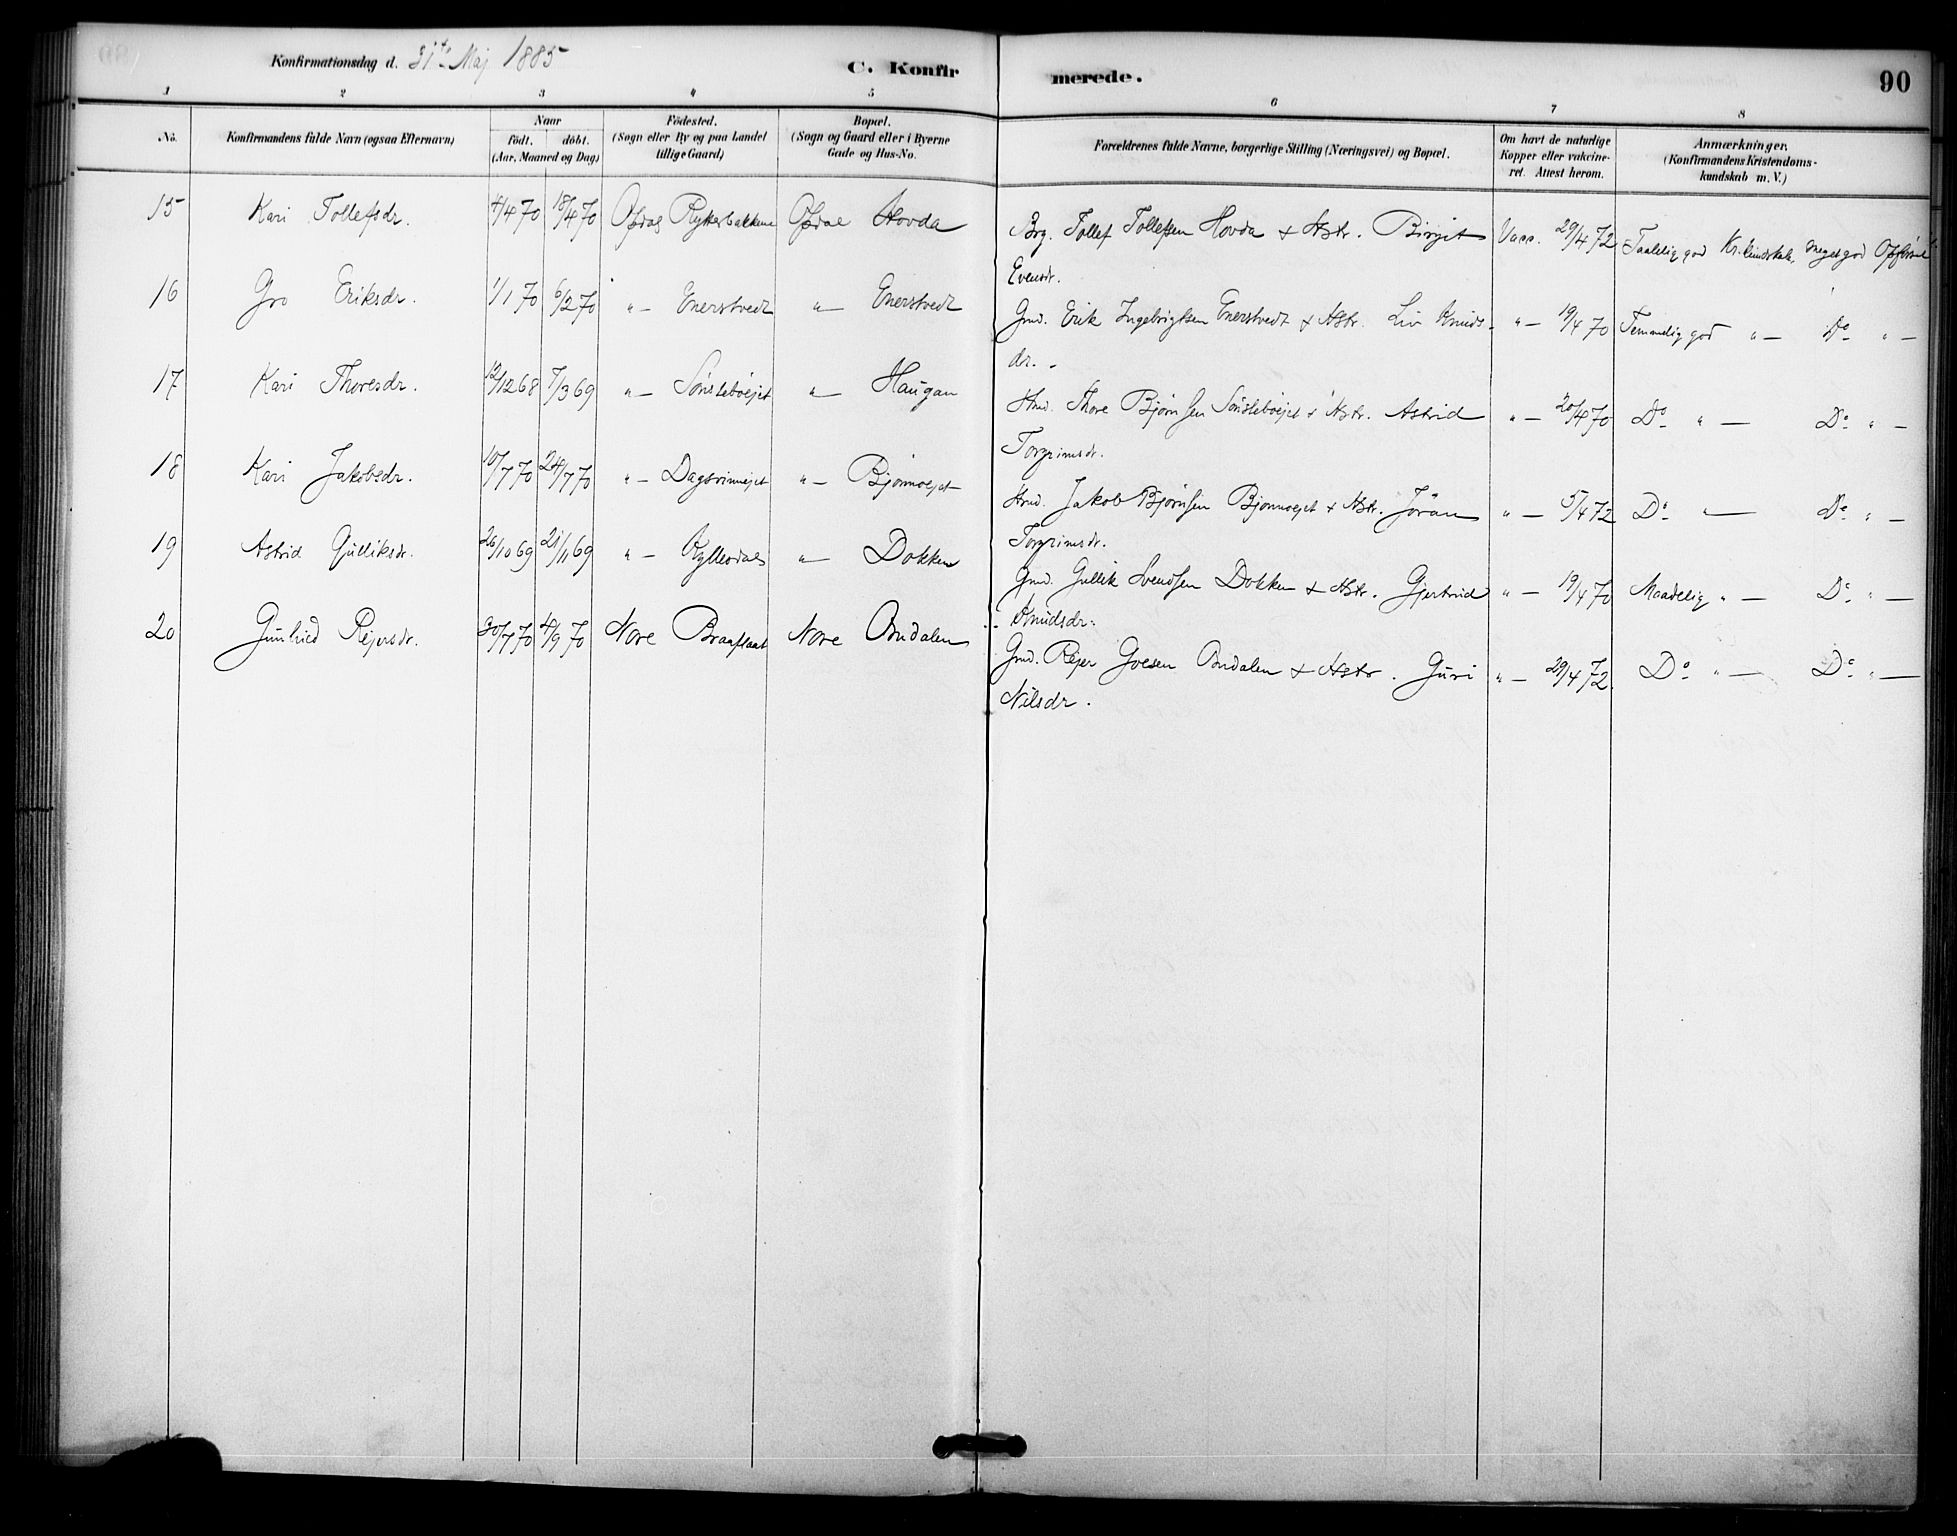 Konfirmationsdag d. 31te Maj 1885
C. Konfirmerede.
90
1 2 3 4 5 6 7 8
No.
Konfirmandens fulde Navn (ogsaa Efternavn)
Naar
födt. döbt.
(Aar, Maaned og Dag)
Födested.
(Sogn eller By og paa Landet
tillige Gaard)
Bopæl.
(Sogn og Gaard eller i Byerne
Gade og Hus-No.
Forældrenes fulde Navne, borgerlige Stilling (Næringsvei) og Bopæl.
Om havt de naturlige
Kopper eller vakcine-
ret. Attest herom.
Anmærkninger.
(Konfirmandens Kristendoms-
kundskab m. V.)
15 Kari Tollefsdr. 4/4 70 18/4 70 Opdal Hovda Brg. Tollef Tollefsen Hovda & Hstr. Birgit Vacc. 29/4 72 Taalelig god Kr. kundskab, meget god Opförsel
Evensdr.
16 Gro Eriksdr. 1/1 70 6/2 70 " — Enerstvedt " — Enerstvedt Gmd. Erik Ingebrigtsen Enerstvedt & Hstr. Liv Knuds- " — 19/4 70 Temmelig god " — Do " —
dr. -
17 Kari Thoresdr. 12/12 68 7/3 69 " — Sönsteböejet " — Haugan Hmd. Thore Björnsen Sönsteböejet & Hstr. Astrid " — 20/4 70 Do " — Do " —
Torgrimsdr.
18 Kari Jakobsdr. 10/7 70 24/7 70 " — " — Björnmoejet Hmd. Jakob Björnsen Björnmoejet & Hstr. Jöran " — 5/4 72 Do " — Do " —
Torgrimsdr.
19 Astrid Gulliksdr. 26/10 69 21/11 69 " — " — Dokken Gmd. Gullik Svendsen Dokken & Hstr. Gjertrud " — 19/4 70 Maadelig " — Do " —
Knudsdr.
20 Gunhild Rejersdr. 30/7 70 4/9 70 Nore Nore Gmd. Rejer & Hstr. Guri " — 29/4 72. Do " — Do " —
Nilsdr.